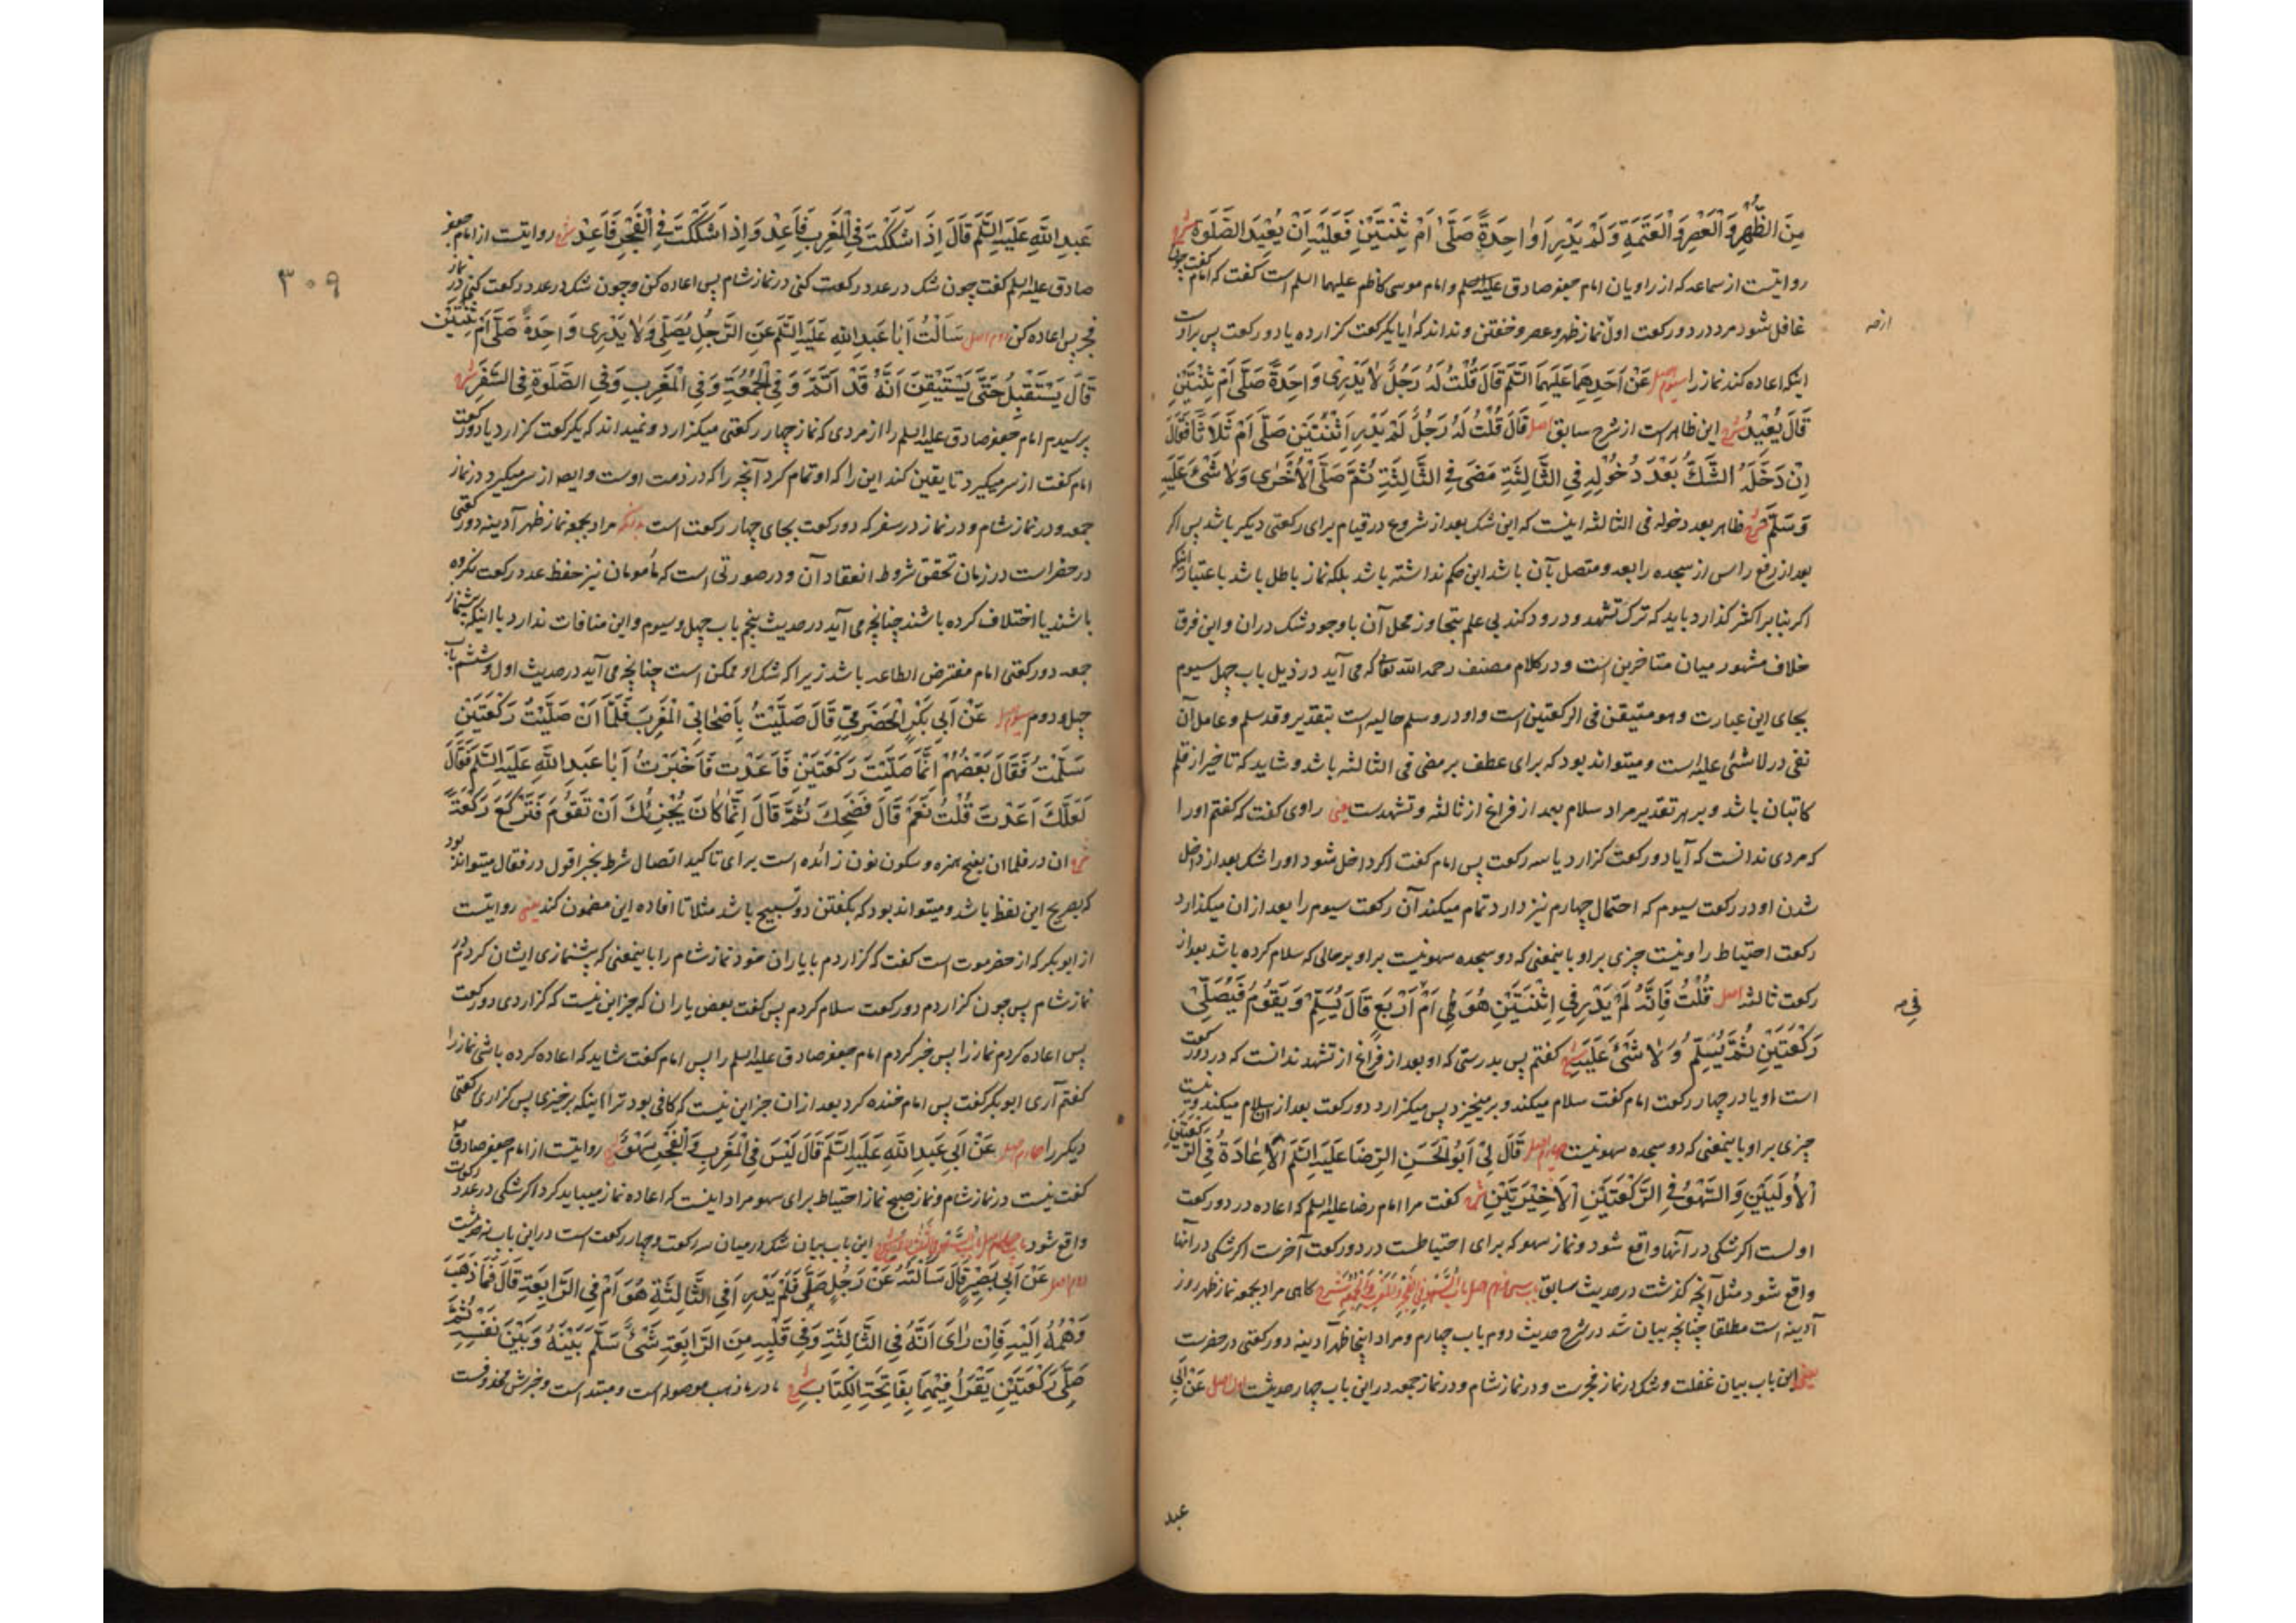 مِنَ الظُّهْرِ وَالْعَصْرِ وَالْعَتَمَةِ وَلَمْ يَدْرِ أَوَاحِدَةً صَلَّى أَمْ ثِنْتَيْنِ فَعَلَيْهِ أَنْ يُعِيدَ الصَّلَوةَ شرح
روایتست از سماعه که از راویان امام جعفر صادق علیه السلم و امام موسی کاظم علیهما السلم است گفت که امام گفت چون
غافل شود مرد در دو رکعت اول نماز ظهر و عصر و خفتن و نداند که آیا یکرکعت گزارده یا دو رکعت پس بر اوست
اینکه اعاده کند نماز را سیوم اصل عَنْ أَحَدِهِمَا عَلَيْهِمَا السَّلَم قَالَ قُلْتُ لَهُ رَجُلٌ لَا يَدْرِي وَاحِدَةً صَلَّى أَمْ ثِنْتَيْنِ
قَالَ يُعِيدُ شرح این ظاهر است از شرح سابق اصل قَالَ قُلْتُ لَهُ رَجُلٌ لَمْ يَدْرِ اثْنَتَيْنِ صَلَّى أَمْ ثَلَاثًا فَقَالَ
إِنْ دَخَلَهُ الشَّكُّ بَعْدَ دُخُولِهِ فِي الثَّالِثَةِ مَضَى فِي الثَّالِثَةِ ثُمَّ صَلَّى الْأُخْرَى وَلَا شَيْءَ عَلَيْهِ
وَسَلَّمَ شرح ظاهر بعد دخوله فی الثالثه اینست که این شک بعد از شروع در قیام برای رکعتی دیگر باشد پس اگر
بعد از رفع راس از سجده رابعه و متصل بآن باشد این حکم نداشته باشد بلکه نماز باطل باشد باعتبار اینکه
اگر بنا بر اکثر گذارد باید که ترک تشهد و درود کند بی علم بتجاوز محل آن با وجود شک در ان و این فرق
خلاف مشهور میان متاخرین است و در کلام مصنف رحمه الله تعالی که می آید در ذیل باب چهل سیوم
بجای این عبارت و هو متیقن فی الرکعتین است و او در و سلم حالیه است بتقدیر و قد سلم و عامل آن
نفی در لا شئی علیه است و میتواند بود که برای عطف بر مضی فی الثالثه باشد و شاید که تاخیر از قلم
کاتبان باشد و بر هر تقدیر مراد سلام بعد از فراغ از ثالثه و تشهد ست یعنی راوی گفت که گفتم او را
که مردی ندانست که آیا دو رکعت گزارد یا سه رکعت پس امام گفت اگر داخل شود او را شک بعد از داخل
شدن او در رکعت سیوم که احتمال چهارم نیز دارد تمام میکند آن رکعت سیوم را بعد از ان میگذارد
رکعت احتیاط را و نیست چیزی بر او باینمعنی که دو سجده سهو نیست بر او بر حالی که سلام کرده باشد بعد از
رکعت ثالثه اصل قُلْتُ فَإِنَّهُ لَمْ يَدْرِ فِي اثْنَتَيْنِ هُوَ أَمْ أَرْبَعٍ قَالَ يُسَلِّمُ وَيَقُومُ فَيُصَلِّي
رَكْعَتَيْنِ ثُمَّ يُسَلِّمُ وَلَا شَيْءَ عَلَيْهِ شرح گفتم پس بدرستی که او بعد از فراغ از تشهد ندانست که در دو رکعت
است او یا در چهار رکعت امام گفت سلام میکند و بر میخیزد پس میگزارد دو رکعت بعد از ان سلام میکند و نیست
چیزی بر او باینمعنی که دو سجده سهو نیست چهارم اصل قَالَ لِي أَبُو الْحَسَنِ الرِّضَا عَلَيْهِ السَّلَم الْإِعَادَةُ فِي الرَّكْعَتَيْنِ
الْأُولَيَيْنِ وَالسَّهْوُ فِي الرَّكْعَتَيْنِ الْأَخِيرَتَيْنِ شرح گفت مرا امام رضا علیه السلم که اعاده در دو رکعت
اولست اگر شکی در آنها واقع شود و نماز سهو که برای احتیاطست در دو رکعت آخرست اگر شکی در آنها
واقع شود مثل آنچه گذشت در حدیث سابق گاهی مراد بجمعه نماز ظهر روز
آدینه است مطلقا چنانچه بیان شد در شرح حدیث دوم باب چهارم و مراد اینجا ظهر آدینه دو رکعتی در حضرست
یعنی این باب بیان غفلت و شک در نماز فجرست و در نماز شام و در نماز جمعه در این باب چهار حدیثست اول اصل عَنْ أَبِي
عبد
۳۰۹
عَبْدِ اللهِ عَلَيْهِ السَّلَم قَالَ إِذَا شَكَكْتَ فِي الْمَغْرِبِ فَأَعِدْ وَإِذَا شَكَكْتَ فِي الْفَجْرِ فَأَعِدْ شرح روایتست از امام جعفر
صادق علیه السلم گفت چون شک در عدد رکعت کنی در نماز شام پس اعاده کن و چون شک در عدد رکعت کنی در نماز
فجر پس اعاده کن دوم اصل سَأَلْتُ أَبَا عَبْدِ اللهِ عَلَيْهِ السَّلَم عَنِ الرَّجُلِ يُصَلِّي وَلَا يَدْرِي وَاحِدَةً صَلَّى أَمْ ثِنْتَيْنِ
قَالَ يَسْتَقْبِلُ حَتَّى يَسْتَيْقِنَ أَنَّهُ قَدْ أَتَمَّ وَفِي الْجُمُعَةِ وَفِي الْمَغْرِبِ وَفِي الصَّلَوةِ فِي السَّفَرِ شرح
پرسیدم امام جعفر صادق علیه السلم را از مردی که نماز چهار رکعتی میگزارد و نمیداند که یکرکعت گزارد یا دو رکعت
امام گفت از سر میگیرد تا یقین کند این را که او تمام کرد آنچه را که در ذمت اوست و ایضا از سر میگیرد در نماز
جمعه و در نماز شام و در نماز در سفر که دو رکعت بجای چهار رکعت است بدانکه مراد بجمعه نماز ظهر آدینه دو رکعتی
در حضر است در زمان تحقق شروط انعقاد آن و در صورتی است که مأمومان نیز حفظ عدد رکعت نکرده
باشند یا اختلاف کرده باشند چنانچه می آید در حدیث پنجم باب چهل و سیوم و این منافات ندارد با اینکه پیشنماز
جمعه دو رکعتی امام مفترض الطاعه باشد زیرا که شک او ممکن است چنانچه می آید در حدیث اول و ششم باب
چهل و دوم سیوم اصل عَنْ أَبِي بَكْرٍ الْحَضْرَمِيِّ قَالَ صَلَّيْتُ بِأَصْحَابِيَ الْمَغْرِبَ فَلَمَّا أَنْ صَلَّيْتُ رَكْعَتَيْنِ
سَلَّمْتُ فَقَالَ بَعْضُهُمْ إِنَّمَا صَلَّيْتَ رَكْعَتَيْنِ فَأَعَدْتُ فَأَخْبَرْتُ أَبَا عَبْدِ اللهِ عَلَيْهِ السَّلَم فَقَالَ
لَعَلَّكَ أَعَدْتَ قُلْتُ نَعَمْ قَالَ فَضَحِكَ ثُمَّ قَالَ إِنَّمَا كَانَ يُجْزِئُكَ أَنْ تَقُومَ فَتَرْكَعَ رَكْعَةً
شرح ان در فلما ان بفتح همزه و سکون نون زائده است برای تاکید اتصال شرط بجزا قول در فقال میتواند بود
که بصریح این لفظ باشد و میتواند بود که بگفتن دو تسبیح باشد مثلا تا افاده این مضمون کند یعنی روایتست
از ابوبکر که از حضرموت است گفت که گزاردم با یاران خود نماز شام را باینمعنی که پیشنمازی ایشان کردم در
نماز شام پس چون گزاردم دو رکعت سلام کردم پس گفت بعض یاران که جز این نیست که گزاردی دو رکعت
پس اعاده کردم نماز را پس خبر کردم امام جعفر صادق علیه السلم را پس امام گفت شاید که اعاده کرده باشی نماز را
گفتم آری ابوبکر گفت پس امام خنده کرد بعد از ان جز این نیست که کافی بود ترا اینکه برخیزی پس گزاری رکعتی
دیگر را چهارم اصل عَنْ أَبِي عَبْدِ اللهِ عَلَيْهِ السَّلَم قَالَ لَيْسَ فِي الْمَغْرِبِ وَالْفَجْرِ سَهْوٌ شرح روایتست از امام جعفر صادق
گفت نیست در نماز شام و نماز صبح نماز احتیاط برای سهو مراد اینست که اعاده نماز میباید کرد اگر شکی در عدد رکعات
واقع شود این باب بیان شک در میان سه رکعت و چهار رکعت است در این باب نه حدیثست
اصل عَنْ أَبِي بَصِيرٍ قَالَ سَأَلْتُهُ عَنْ رَجُلٍ صَلَّى فَلَمْ يَدْرِ أَفِي الثَّالِثَةِ هُوَ أَمْ فِي الرَّابِعَةِ قَالَ فَمَا ذَهَبَ
وَهْمُهُ إِلَيْهِ فَإِنْ رَأَى أَنَّهُ فِي الثَّالِثَةِ وَفِي قَلْبِهِ مِنَ الرَّابِعَةِ شَيْءٌ سَلَّمَ بَيْنَهُ وَبَيْنَ نَفْسِهِ ثُمَّ
صَلَّى رَكْعَتَيْنِ يَقْرَأُ فِيهِمَا بِفَاتِحَةِ الْكِتَابِ شرح ما در ما ذهب موصوله است و مبتدا است و خبرش محذوفست